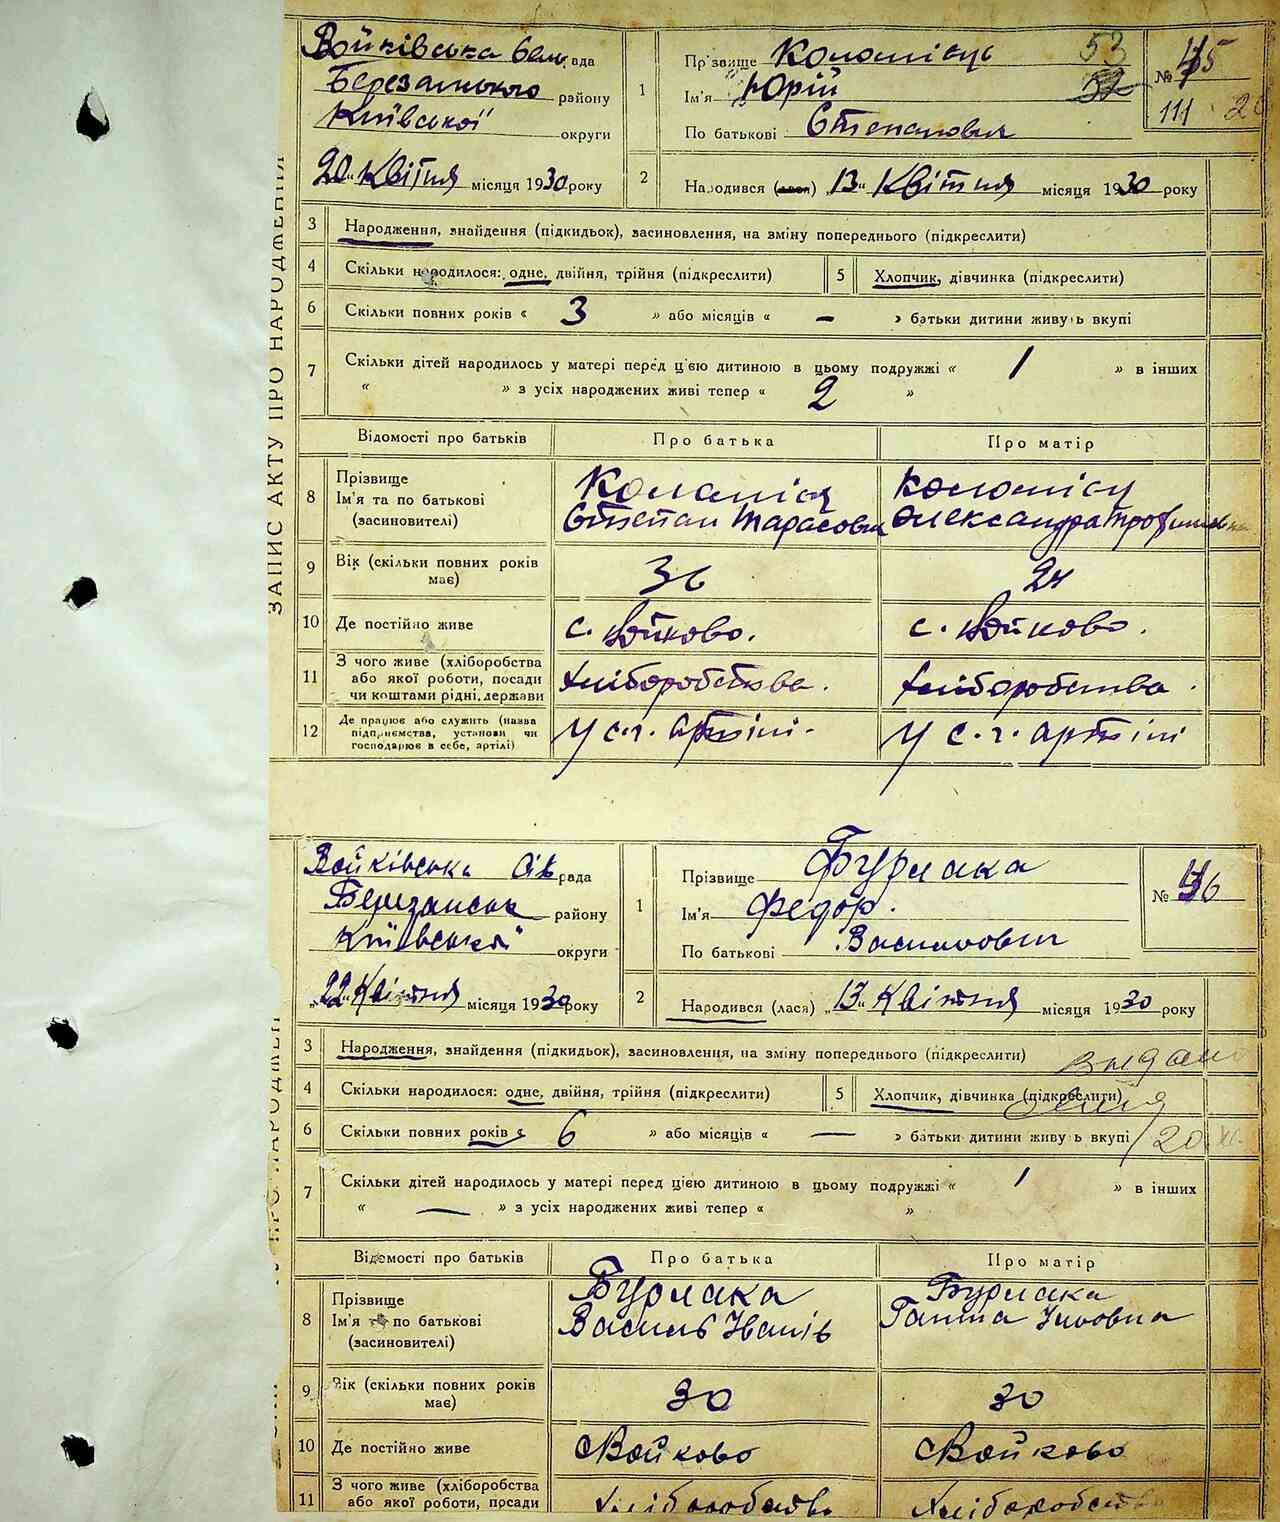 ЗАПИС АКТУ ПРО НАРОДЖЕННЯ
Войківська рада
Березанського району
Київської округи
"20" Квітня місяця 1930 року
1
Прізвище
Ім'я Юрій
По батькові Степанович
53
№ 45
111
2
Народився 13" Квітня місяця 1930 року
3 Народження, знайдення (підкидьок), засиновлення, на зміну попереднього (підкреслити)
4 Скільки народилося: одне, двійня, трійня (підкреслити)
5 Хлопчик, дівчинка (підкреслити)
6 Скільки повних років « 3 » або місяців « — » батьки дитини живуть вкупі
7 Скільки дітей народилось у матері перед цією дитиною в цьому подружжі « 1 » в інших
« » з усіх народжених живі тепер « 2 »
Відомості про батьків Про батька Про матір
8 Прізвище
Ім'я та по батькові
(засиновителі)
Степан Тарасович
Олександра
9 Вік (скільки повних років має) 36 24
10 Де постійно живе с. Войково. с. Войково.
11 З чого живе (хліборобства
або якої роботи, посади
чи коштами рідні, держави
хліборобства. хліборобства.
12 Де працює або служить (назва
підприємства, установи чи
господарює в себе, артілі)
У с.г. артілі. У с.г. артілі
Войківська Сіл рада
Березанськ району
Київської округи
"22" Квітня місяця 1930 року
1
Прізвище Бурлака
Ім'я Федор.
По батькові Васильович
№ 46
2
Народився (лася) "13" Квітня місяця 1930 року
3 Народження, знайдення (підкидьок), засиновлення, на зміну попереднього (підкреслити)
4 Скільки народилося: одне, двійня, трійня (підкреслити)
5 Хлопчик, дівчинка (підкреслити)
6 Скільки повних років « 6 » або місяців « — » батьки дитини живуть вкупі
20
7 Скільки дітей народилось у матері перед цією дитиною в цьому подружжі « 1 » в інших
« — » з усіх народжених живі тепер « »
Відомості про батьків Про батька Про матір
8 Прізвище
Ім'я та по батькові
(засиновителі)
Бурлака
Василь Іванів
Бурлака
Ганна
9 Вік (скільки повних років має) 30 30
10 Де постійно живе Войково Войково
11 З чого живе (хліборобства
або якої роботи, посади
Хліборобство Хліборобство